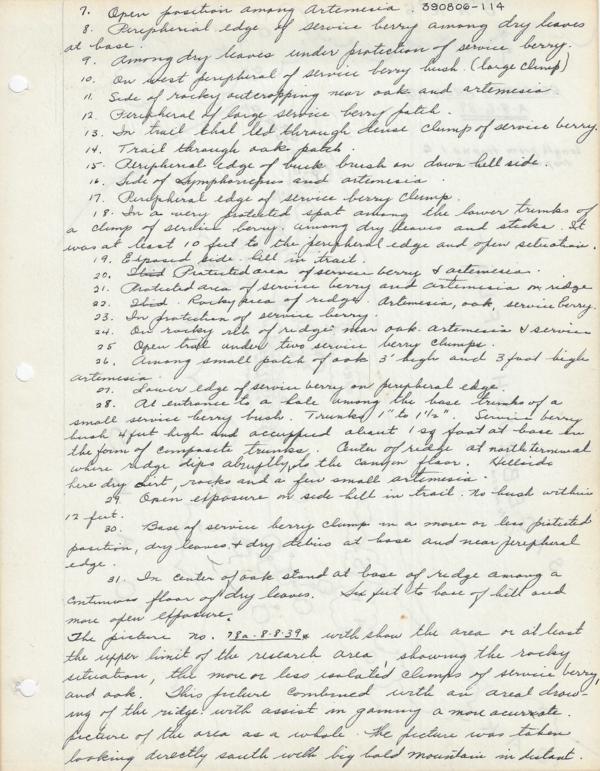 7. Open position among Artemesia. 390806-114
8. Peripherial edge of service berry among dry leaves
at base.
9. Among dry leaves under protection of service berry.
10. On west peripheral of service berry bush. (large clump)
11. Side of rocky outcropping near oak and artemesia
12. Peripheral of large service berry patch.
13. In trail that led through dense clump of service berry.
14. Trail through oak patch.
15. Peripheral edge of buck brush on down hill side.
16. Side of Symphoricarpus and artemesia.
17. Peripheral edge of service berry clump.
18. In a very protected spot among the lower trunks of
a clump of service berry, among dry leaves and sticks. It
was at least 10 feet to the peripheral edge and open setuation.
19. Exposed side hill in trail.
20. Ibid Protected area of service berry & artemesia.
21. Protected area of service berry and artemesia on ridge
22. Ibid. Rocky area of ridge. Artemesia, oak, service berry.
23. In protection of service berry.
24. On rocky rib of ridge near oak artemesia & service
25 Open trail under two service berry clumps.
26. Among small patch of oak 3' high and 3 foot high
artemesia.
27. Lower edge of service berry on peripheral edge.
28. At entrance to a hole among the base trunks of a
small service berry bush. Trunks 1" to 1½". Service berry
bush 4 feet high and occuppied about 1 sq foot at base in
the form of composite trunks. Center of ridge at north
where ridge dips abruptly to the canyon floor. Hillside
here dry dirt, rocks and a few small artemesia.
29. Open exposure on side hill in trail. No bush within
12 feet.
30. Base of service berry clump in a more or less protected
position, dry leaves & dry debris at base and near peripheral
edge.
31. In center of oak stand at base of ridge among a
continuous floor of dry leaves. Six feet to base of hill and
more open exposure.
The picture no. 78a-8-8-39 with show the area or at least
the upper limit of the research area, showing the rocky
situation, the more or less isolated clumps of service berry,
and oak. This picture combined with an areal draw-
ing of the ridge with assist in gaining a more acurrate
picture of the area as a whole. The picture was taken
looking directly south with big bald mountain in distant.